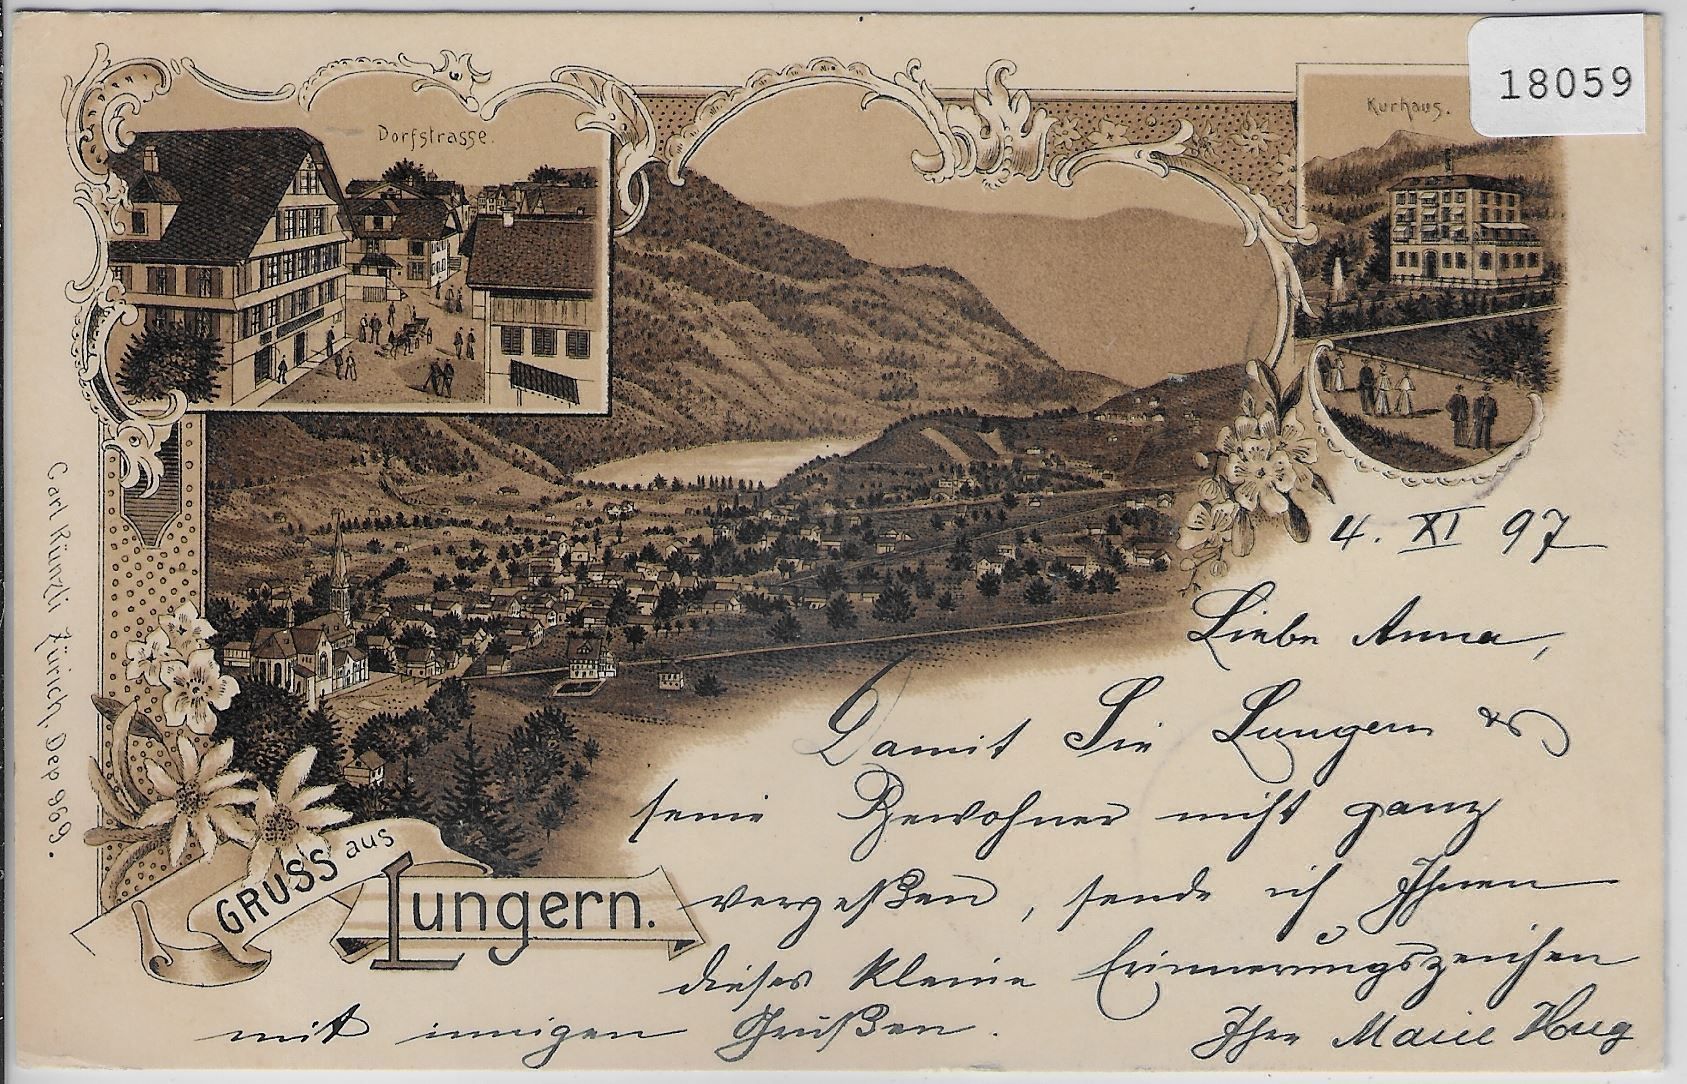 18059
Dorfstrasse.
Kurhaus.
4. XI 97
Liebe Anna,
Damit Sie Lungern &
seine Bewohner nicht ganz
vergeßen, sende ich Ihnen
dieses kleine Erinnerungszeichen
mit innigen Grüßen.
Ihre Marie Hug
GRUSS aus
Lungern.
Carl Künzli Zürich, Dep 969.